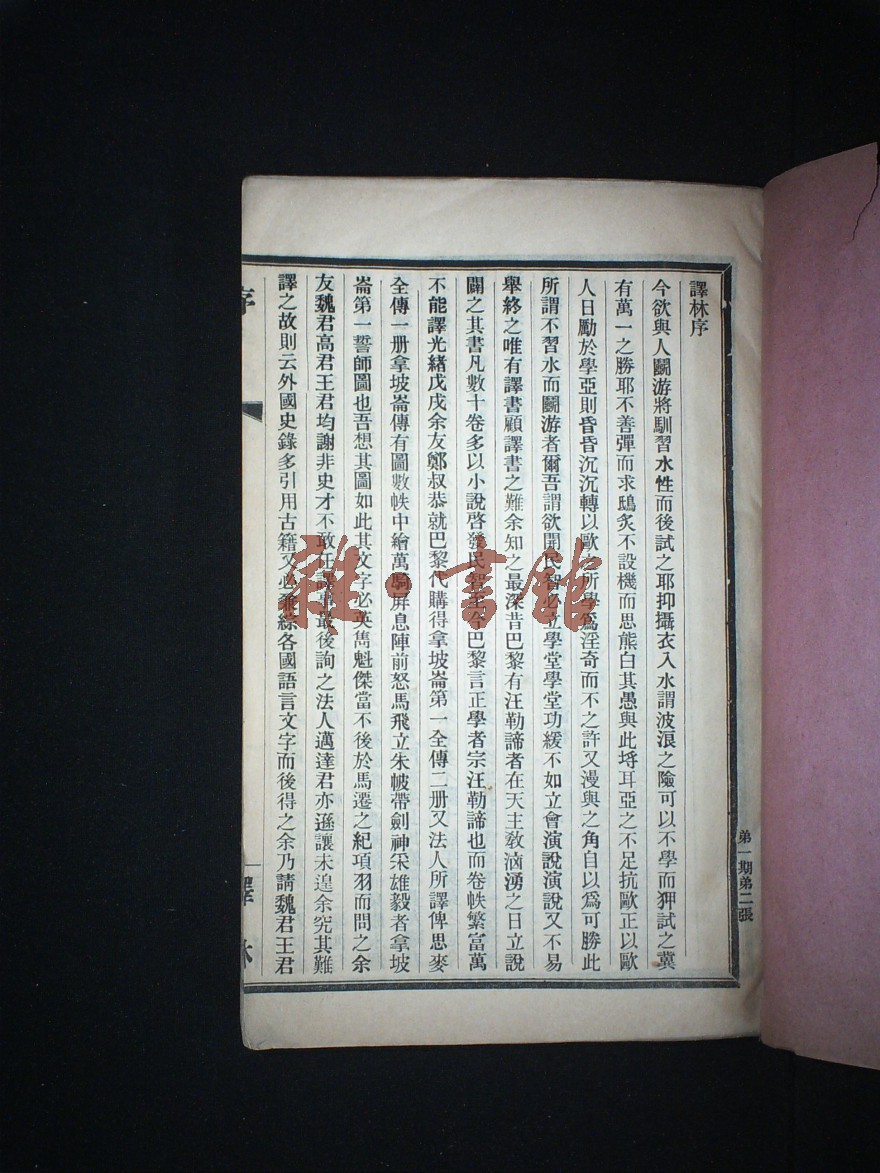 譯林序
今欲與人鬭游將馴習水性而後試之耶抑攝衣入水謂波浪之險可以不學而狎試之冀
有萬一之勝耶不善彈而求鴟炙不設機而思熊白其愚與此埓耳亞之不足抗歐正以歐
人日勵於學亞則昏昏沉沉轉以歐之所學爲淫奇而不之許又漫與之角自以爲可勝此
所謂不習水而鬭游者爾吾謂欲開民智必立學堂學堂功緩不如立會演說演說又不易
舉終之唯有譯書顧譯書之難余知之最深昔巴黎有汪勒諦者在天主教洶湧之日立說
闢之其書凡數十卷多以小說啓發民智至今巴黎言正學者宗汪勒諦也而卷帙繁富萬
不能譯光緒戊戌余友鄭叔恭就巴黎代購得拿坡崙第一全傳二册又法人所譯俾思麥
全傳一册拿坡崙傳有圖數帙中繪萬騎屏息陣前怒馬飛立朱帔帶劍神采雄毅者拿坡
崙第一誓師圖也吾想其圖如此其文字必英雋魁傑當不後於馬遷之紀項羽而問之余
友魏君高君王君均謝非史才不敢任譯事最後詢之法人邁達君亦遜讓未遑余究其難
譯之故則云外國史錄多引用古籍又必兼綜各國語言文字而後得之余乃請魏君王君
序
一
譯林
第一期第二張
雜·書館